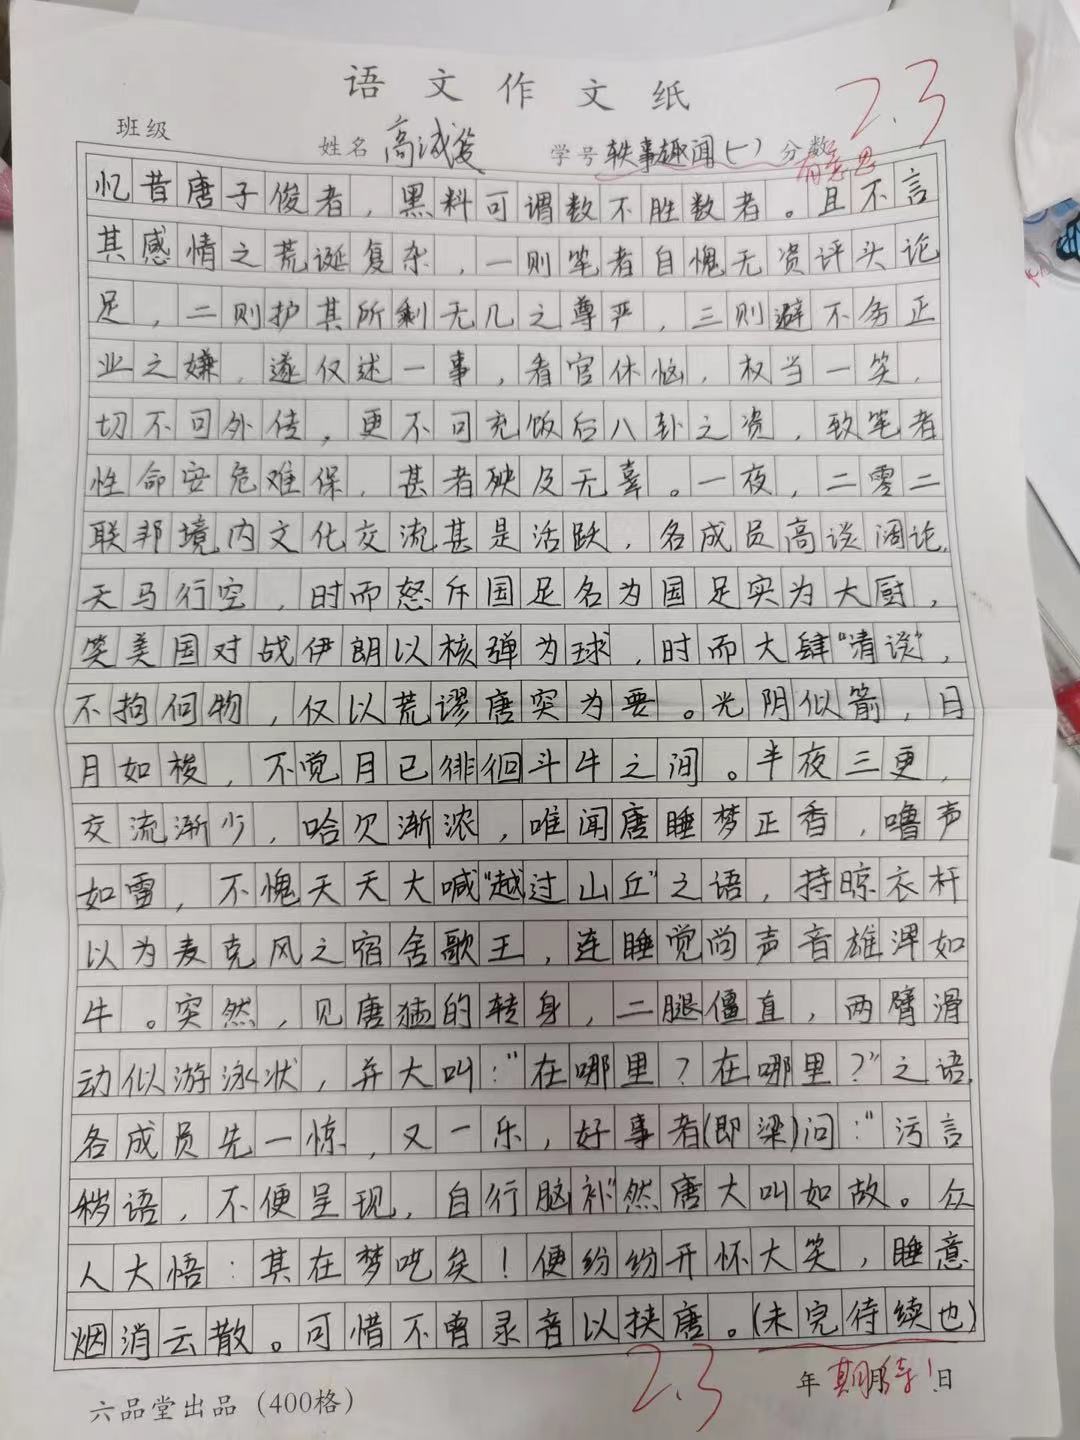 语文作文纸
2.3
班级 姓名 高诚俊 学号 轶事趣闻(一) 分数
有意思
忆昔唐子俊者，黑料可谓数不胜数者。且不言
其感情之荒诞复杂，一则笔者自愧无资评头论
足，二则护其所剩无几之尊严，三则避不务正
业之嫌，遂仅述一事，看官休恼，权当一笑，
切不可外传，更不可充饭后八卦之资，致笔者
性命安危难保，甚者殃及无辜。一夜，二零二
联邦境内文化交流甚是活跃，各成员高谈阔论，
天马行空，时而怒斥国足名为国足实为大厨，
笑美国对战伊朗以核弹为球，时而大肆"清谈"，
不拘何物，仅以荒谬唐突为要。光阴似箭，日
月如梭，不觉月已徘徊斗牛之间。半夜三更，
交流渐少，哈欠渐浓，唯闻唐睡梦正香，噜声
如雷，不愧天天大喊"越过山丘"之语，持晾衣杆
以为麦克风之宿舍歌王，连睡觉尚声音雄浑如
牛。突然，见唐猛的转身，二腿僵直，两臂滑
动似游泳状，并大叫："在哪里？在哪里？"之语，
各成员先一惊，又一乐，好事者(即梁)问："污言
秽语，不便呈现，自行脑补"然唐大叫如故。众
人大悟：其在梦呓矣！便纷纷开怀大笑，睡意
烟消云散。可惜不曾录音以挟唐。(未完待续也)
六品堂出品（400格）
2.3
年 月 日
期待！